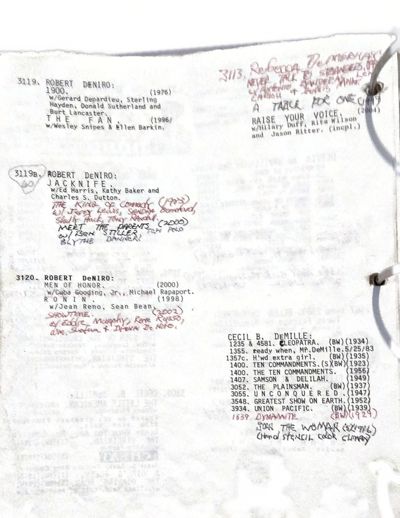 3119. ROBERT DENIRO:
1900. (1976)
w/Gerard Depardieu, Sterling
Hayden, Donald Sutherland and
Burt Lancaster.
THE FAN. (1996)
w/Wesley Snipes & Ellen Barkin.
3119a. ROBERT DeNIRO:
JACKNIFE.
w/Ed Harris, Kathy Baker and
Charles S. Dutton.
THE KING OF COMEDY (1983)
w/ Jerry Lewis,
MEET THE PARENTS (2000)
w/ BEN STILLER, TERI POLO
BLYTHE DANNER!
3120. ROBERT DeNIRO:
MEN OF HONOR. (2000)
w/Cuba Gooding, Jr., Michael Rapaport.
RONIN. (1998)
w/Jean Reno, Sean Bean.
SHOWTIME. (2002)
w/ Eddie Murphy, Rene Russo,
Wm. Shatner & Drena De Niro.
3113. Rebecca DeMornay:
NEVER TALK TO STRANGERS
A TABLE FOR ONE
(2004)
RAISE YOUR VOICE.
w/Hilary Duff, Rita Wilson
and Jason Ritter. (incpl.)
CECIL B. DeMILLE:
1235 & 4581. CLEOPATRA. (BW)(1934)
1355. ready when, MR.DeMille.5/25/83
1357c. H'wd extra girl. (BW)(1935)
1400. TEN COMMANDMENTS.(S)(BW)(1923)
1400. THE TEN COMMANDMENTS. (1956)
1407. SAMSON & DELILAH. (1949)
3052. THE PLAINSMAN. (BW)(1937)
3055. UNCONQUERED. (1947)
3548. GREATEST SHOW ON EARTH.(1952)
3934. UNION PACIFIC. (BW)(1939)
1639. DYNAMITE (BW)(1929)
JOAN THE WOMAN
(Hand STENCIL COLOR